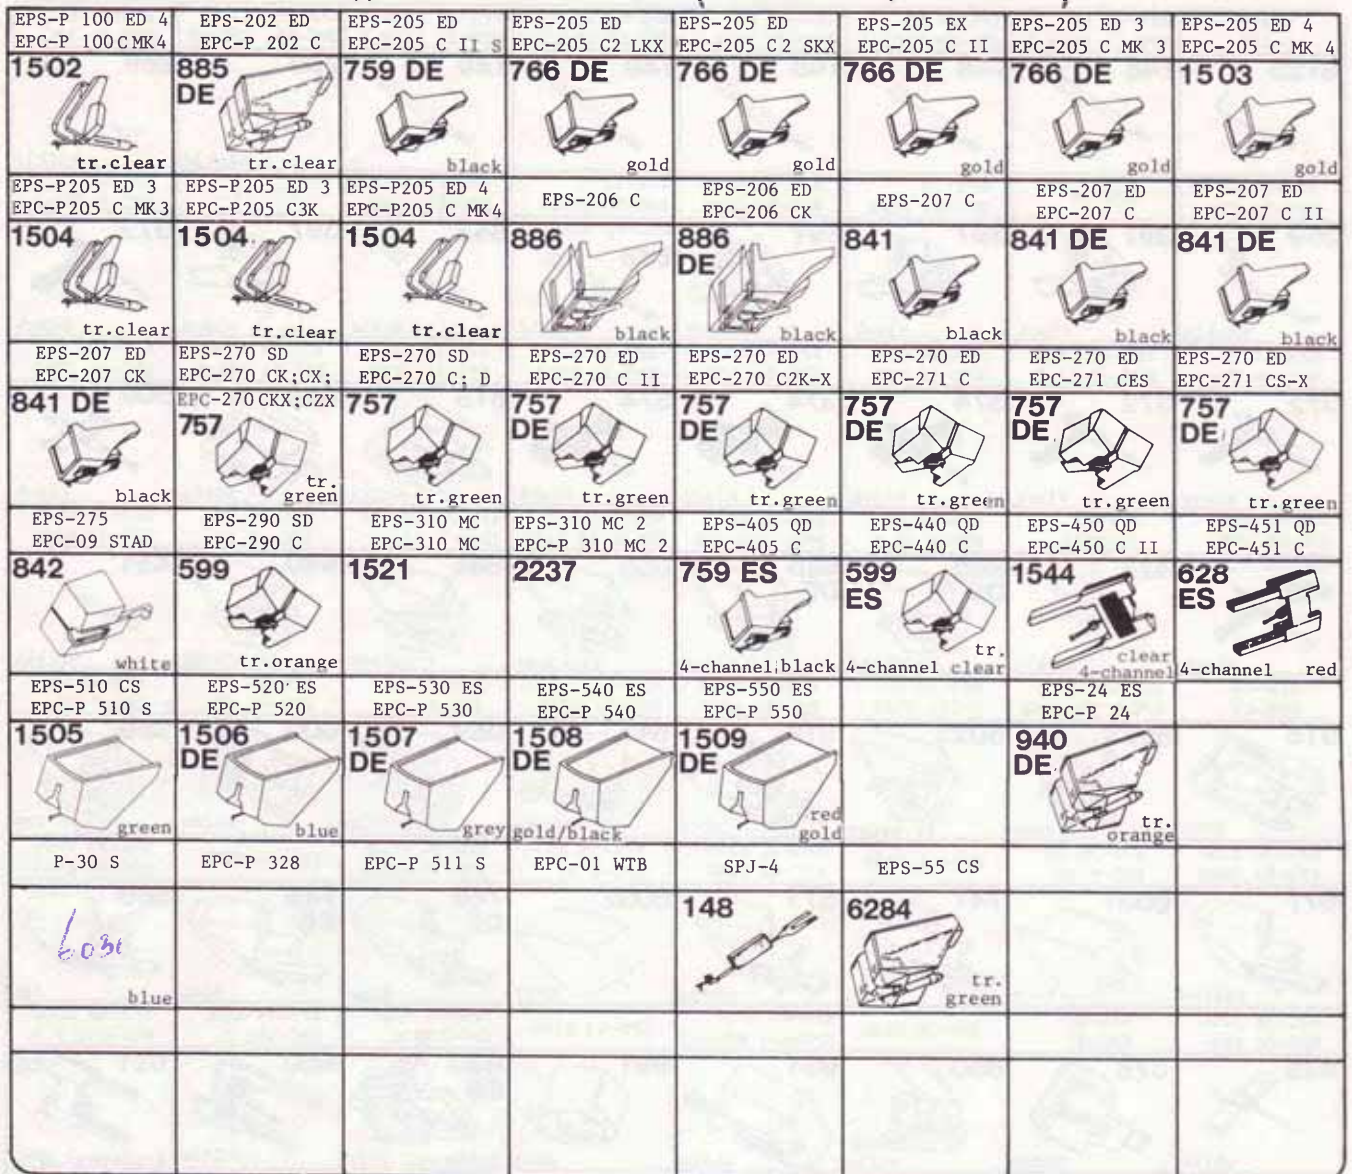 EPS-P 100 ED 4
EPC-P 100 C MK4
EPS-202 ED
EPC-P 202 C
EPS-205 ED
EPC-205 C II S
EPS-205 ED
EPC-205 C2 LKX
EPS-205 ED
EPC-205 C 2 SKX
EPS-205 EX
EPC-205 C II
EPS-205 ED 3
EPC-205 C MK 3
EPS-205 ED 4
EPC-205 C MK 4
1502
tr.clear
885
DE
tr.clear
759 DE
black
766 DE
gold
766 DE
gold
766 DE
gold
766 DE
gold
1503
gold
EPS-P205 ED 3
EPC-P205 C MK3
EPS-P205 ED 3
EPC-P205 C3K
EPS-P205 ED 4
EPC-P205 C MK4
EPS-206 C
EPS-206 ED
EPC-206 CK
EPS-207 C
EPS-207 ED
EPC-207 C
EPS-207 ED
EPC-207 C II
1504
tr.clear
1504
tr.clear
1504
tr.clear
886
black
886
DE
black
841
black
841 DE
black
841 DE
black
EPS-207 ED
EPC-207 CK
EPS-270 SD
EPC-270 CK;CX;
EPC-270 CKX;CZX
EPS-270 SD
EPC-270 C; D
EPS-270 ED
EPC-270 C II
EPS-270 ED
EPC-270 C2K-X
EPS-270 ED
EPC-271 C
EPS-270 ED
EPC-271 CES
EPS-270 ED
EPC-271 CS-X
841 DE
black
757
tr.
green
757
tr.green
757
DE
tr.green
757
DE
tr.green
757
DE
tr.green
757
DE
tr.green
757
DE
tr.green
EPS-275
EPC-09 STAD
EPS-290 SD
EPC-290 C
EPS-310 MC
EPC-310 MC
EPS-310 MC 2
EPC-P 310 MC 2
EPS-405 QD
EPC-405 C
EPS-440 QD
EPC-440 C
EPS-450 QD
EPC-450 C II
EPS-451 QD
EPC-451 C
842
white
599
tr.orange
1521
2237
759 ES
4-channel black
599
ES
4-channel tr. clear
1544
clear
4-channel
628
ES
4-channel red
EPS-510 CS
EPC-P 510 S
EPS-520 ES
EPC-P 520
EPS-530 ES
EPC-P 530
EPS-540 ES
EPC-P 540
EPS-550 ES
EPC-P 550
EPS-24 ES
EPC-P 24
1505
green
1506
DE
blue
1507
DE
grey
1508
DE
gold/black
1509
DE
red
gold
940
DE
tr.
orange
P-30 S
EPC-P 328
EPC-P 511 S
EPC-01 WTB
SPJ-4
EPS-55 CS
blue
148
6284
tr.
green